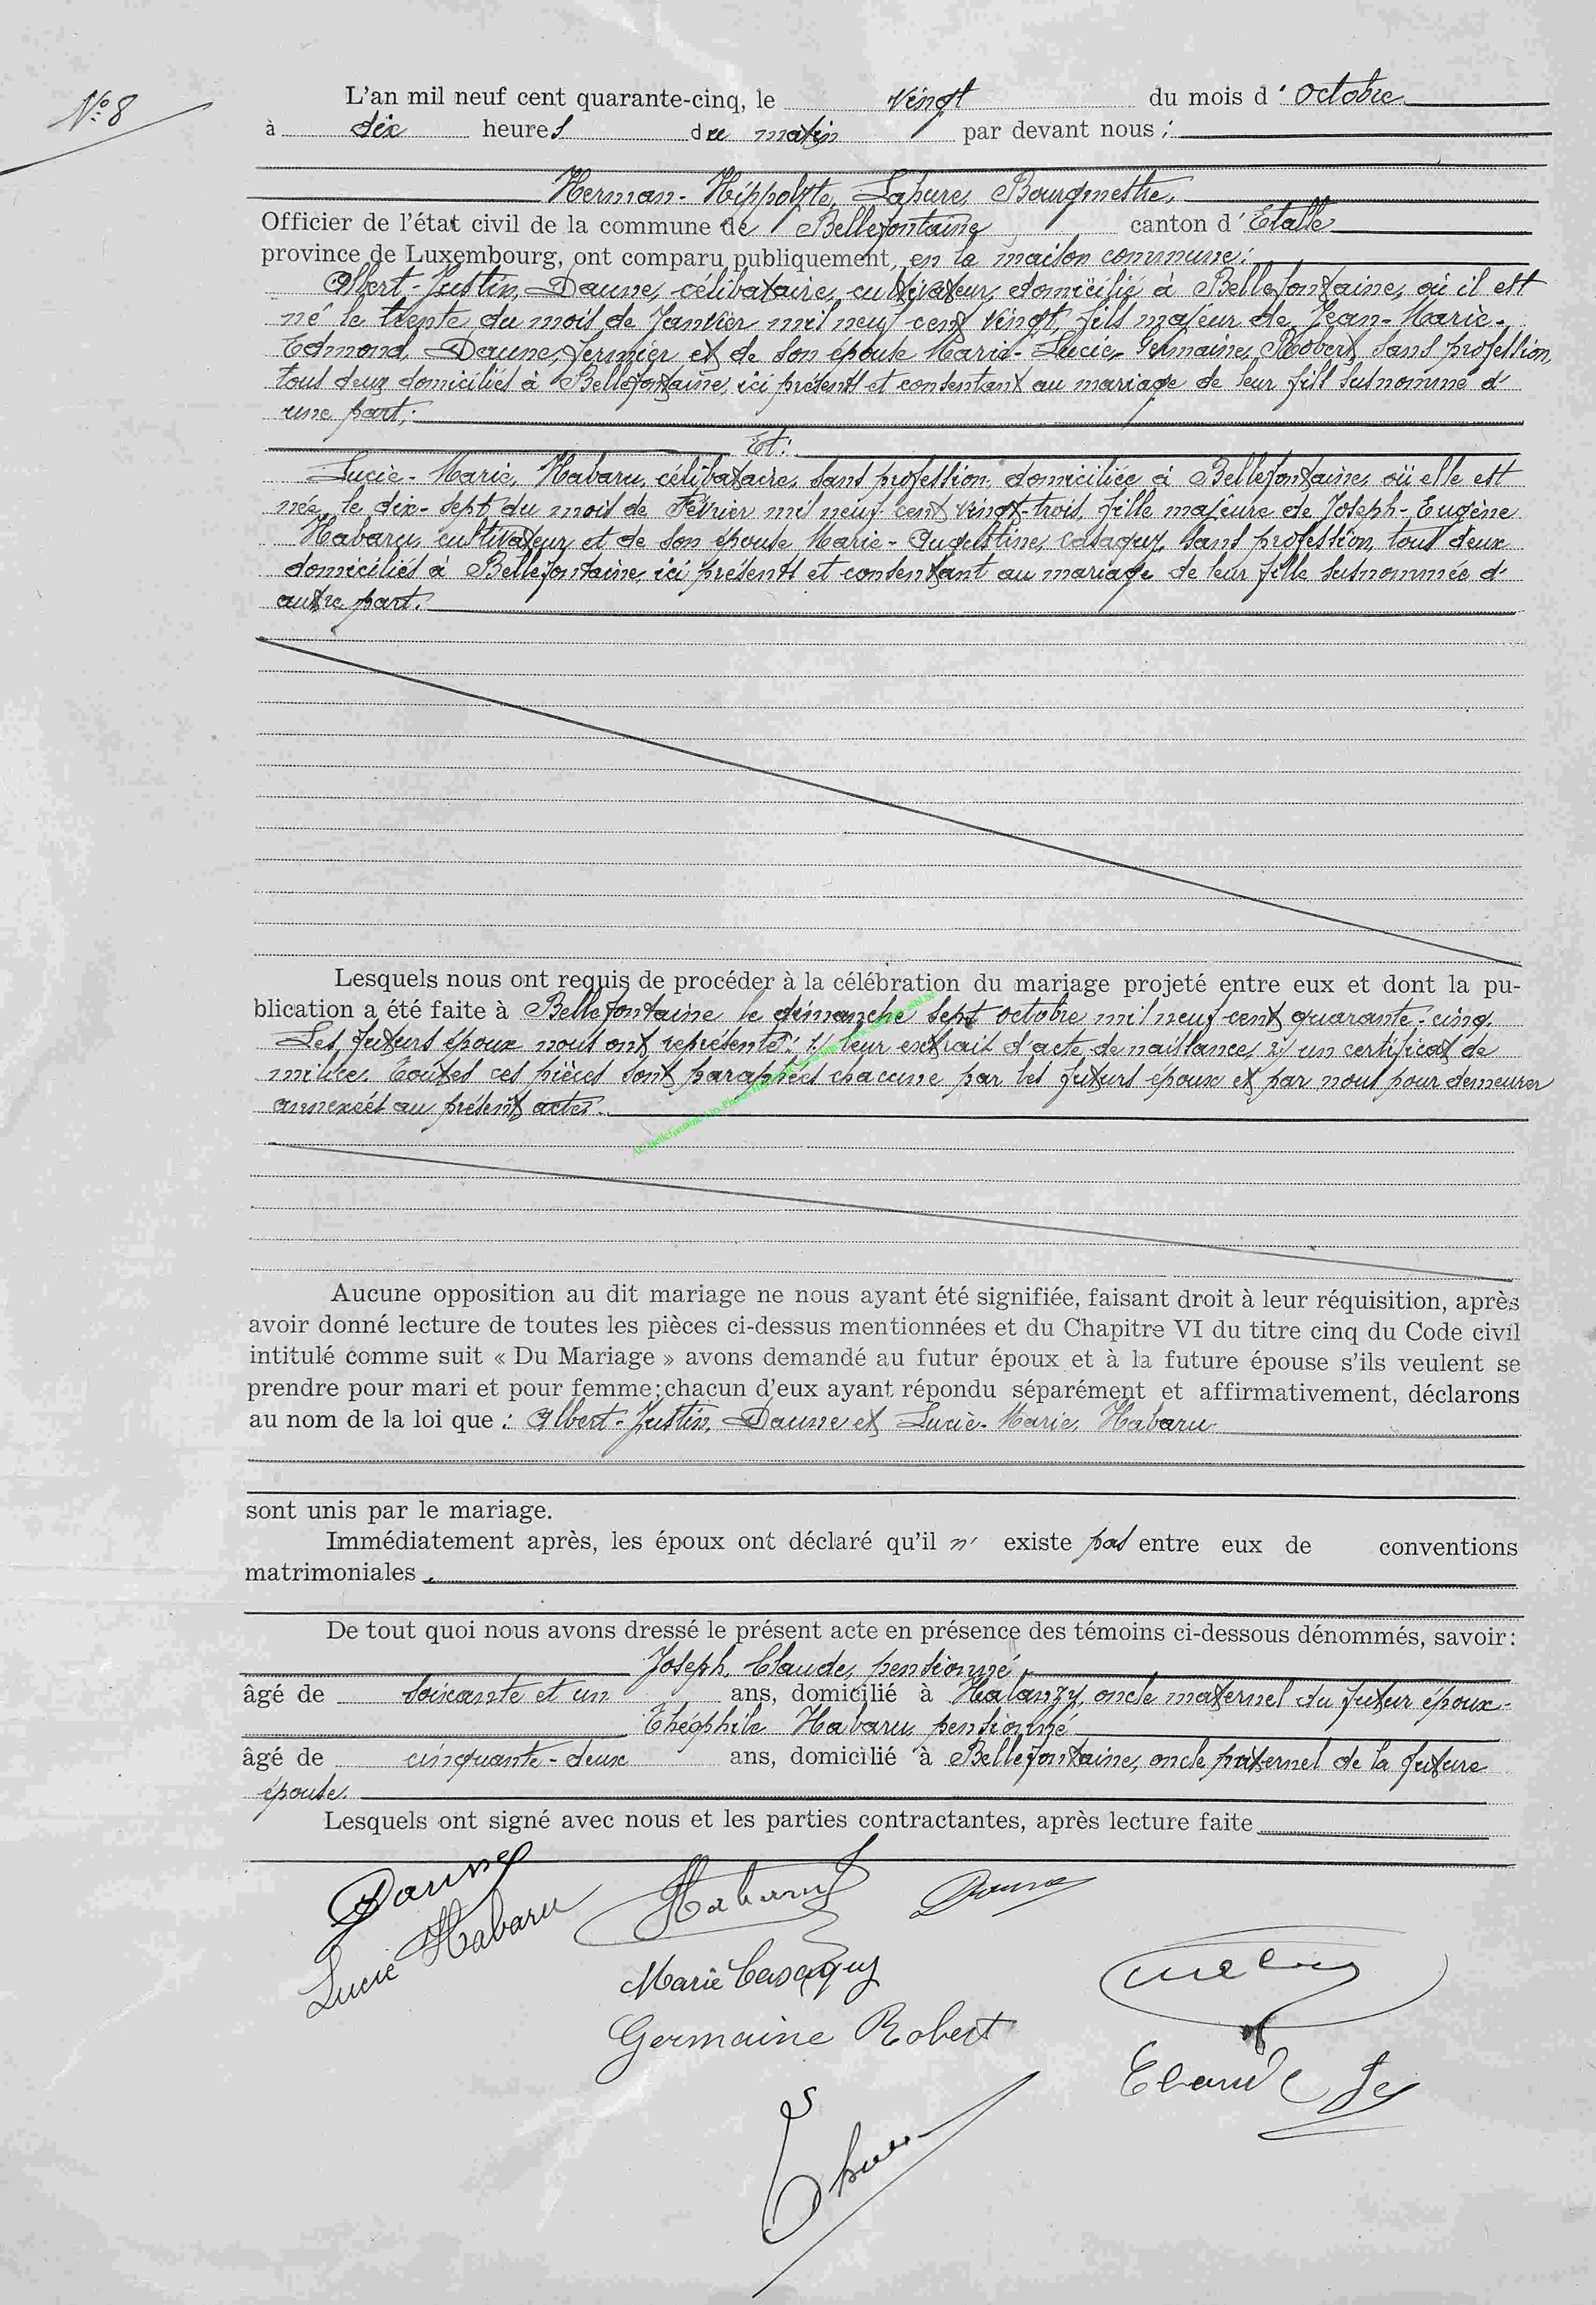 N° 8
L'an mil neuf cent quarante-cinq, le vingt du mois d'Octobre
à dix heures du matin par devant nous :
Herman-Hippolyte, Lapure, Bourgmestre,
Officier de l'état civil de la commune de Bellefontaine canton d'Etalle
province de Luxembourg, ont comparu publiquement, en la maison commune :
Albert-Justin, Daune, célibataire, cultivateur, domicilié à Bellefontaine, où il est
né le trente du mois de Janvier mil neuf cent vingt, fils majeur de Jean-Marie-
Edmond, Daune, fermier et de son épouse Marie-Lucie-Germaine, Robert, sans profession,
tous deux domiciliés à Bellefontaine, ici présents et consentant au mariage de leur fils susnommé d'
une part ;
Et :
Lucie-Marie, Habaru, célibataire, sans profession, domiciliée à Bellefontaine, où elle est
née, le dix-sept du mois de Février mil neuf cent vingt-trois, fille majeure de Joseph-Eugène
Habaru, cultivateur et de son épouse Marie-Augustine, Casaquy, sans profession, tous deux
domiciliés à Bellefontaine, ici présents et consentant au mariage de leur fille susnommée d'
autre part.
Lesquels nous ont requis de procéder à la célébration du mariage projeté entre eux et dont la pu-
blication a été faite à Bellefontaine le dimanche sept octobre mil neuf cent quarante-cinq.
Les futurs époux nous ont représenté : 1/ leur extrait d'acte de naissance, 2/ un certificat de
milice. Toutes ces pièces sont paraphées chacune par les futurs époux et par nous pour demeurer
annexées au présent acte.
Aucune opposition au dit mariage ne nous ayant été signifiée, faisant droit à leur réquisition, après
avoir donné lecture de toutes les pièces ci-dessus mentionnées et du Chapitre VI du titre cinq du Code civil
intitulé comme suit « Du Mariage » avons demandé au futur époux et à la future épouse s'ils veulent se
prendre pour mari et pour femme; chacun d'eux ayant répondu séparément et affirmativement, déclarons
au nom de la loi que : Albert-Justin, Daune et Lucie-Marie, Habaru
sont unis par le mariage.
Immédiatement après, les époux ont déclaré qu'il n' existe pas entre eux de conventions
matrimoniales.
De tout quoi nous avons dressé le présent acte en présence des témoins ci-dessous dénommés, savoir :
Joseph, Claude, pensionné,
âgé de soixante et un ans, domicilié à Halanzy, oncle maternel du futur époux.
Théophile Habaru, pensionné
âgé de cinquante-deux ans, domicilié à Bellefontaine, oncle paternel de la future
épouse.
Lesquels ont signé avec nous et les parties contractantes, après lecture faite
Daune Habaru Daune
Lucie Habaru
Marie Casaquy
Germaine Robert
Claude Js